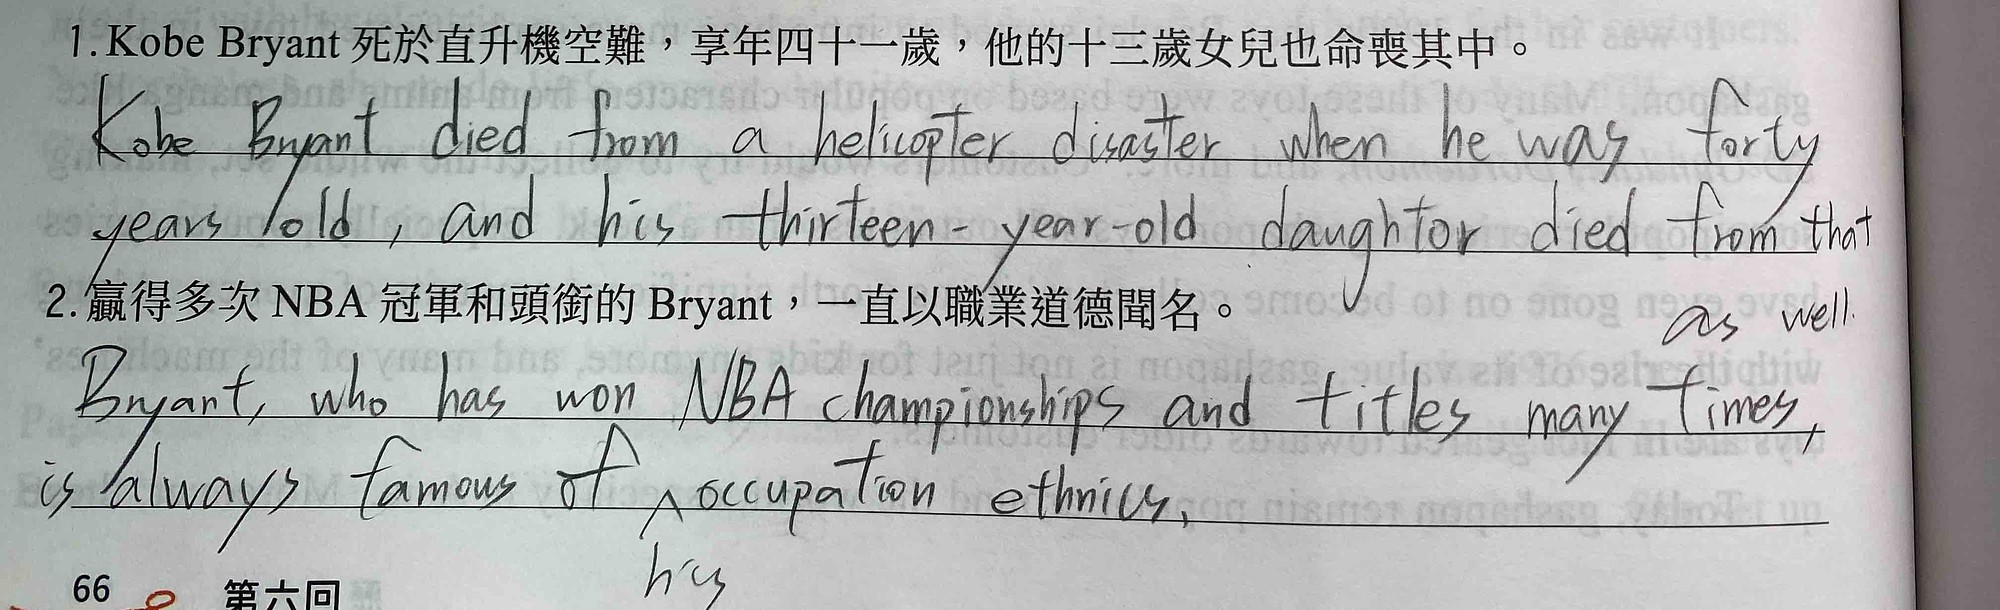 1. Kobe Bryant 死於直升機空難，享年四十一歲，他的十三歲女兒也命喪其中。
Kobe Bryant died from a helicopter disaster when he was forty
years old, and his thirteen-year-old daughtor died from that
as well.
2. 贏得多次 NBA 冠軍和頭銜的 Bryant，一直以職業道德聞名。
Bryant, who has won NBA championships and titles many times,
is always famous of ^ occupation ethnics.
his
66 第六回